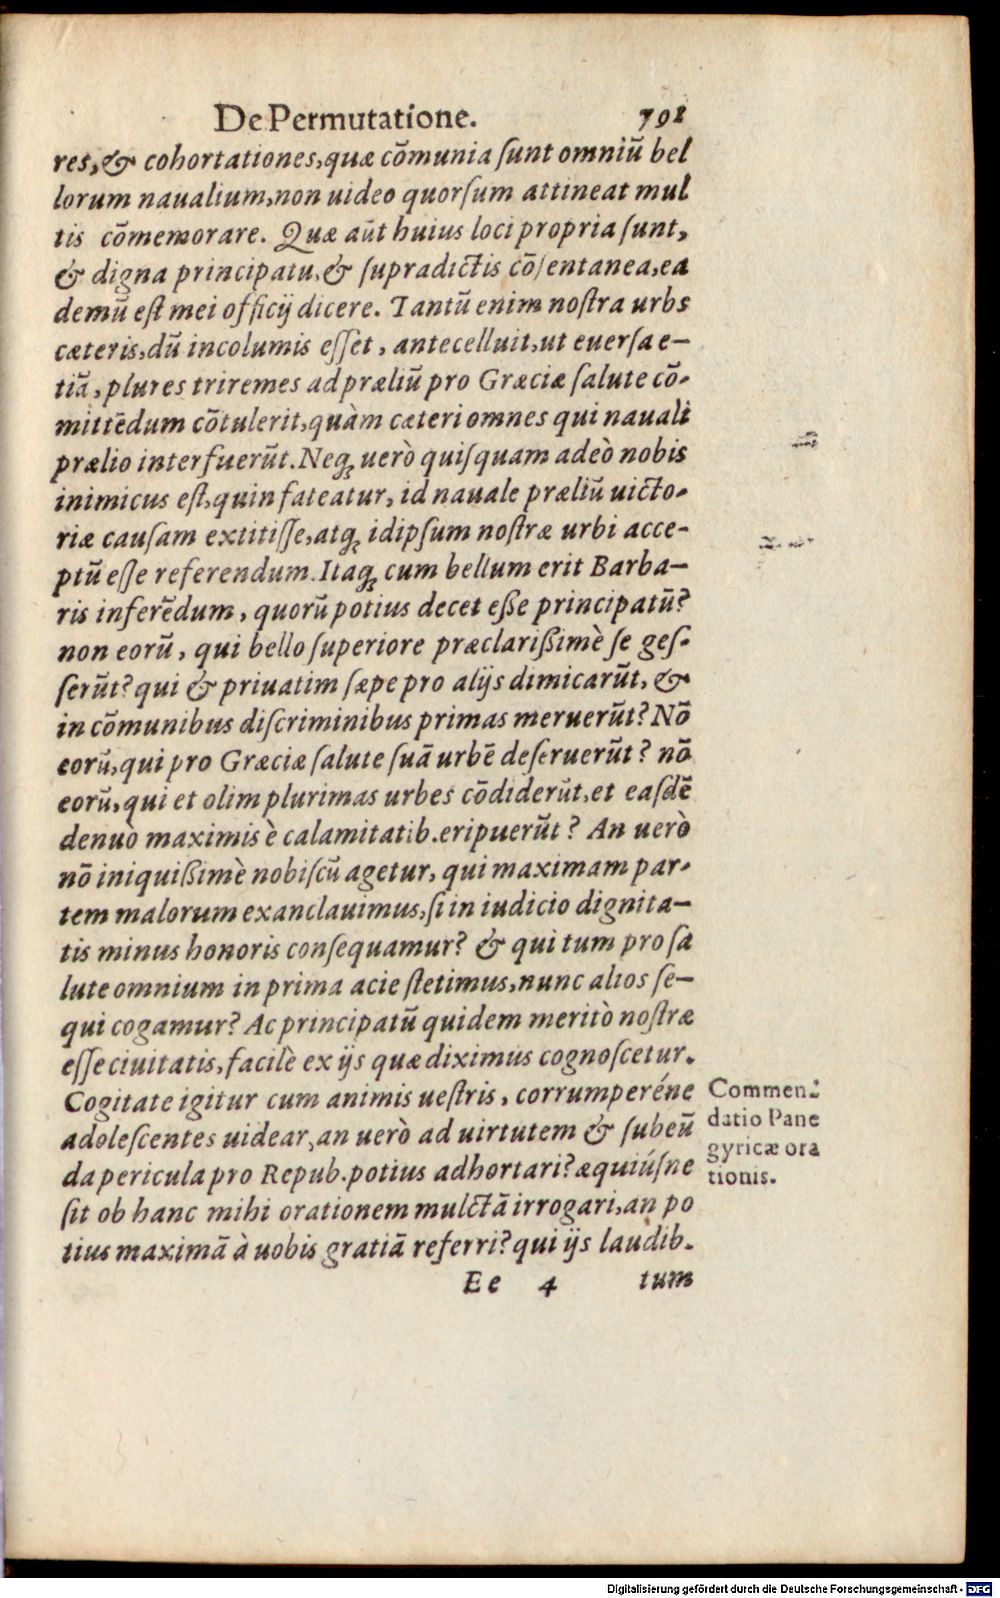 De Permutatione. 791
res, & cohortationes, quæ cõmunia ſunt omniũ bel
lorum naualium, non uideo quorſum attineat mul
tis cõmemorare. Quæ aũt huius loci propria ſunt,
& digna principatu, & ſupradictis cõſentanea, ea
demũ eſt mei officij dicere. Tantũ enim noſtra urbs
cæteris, dũ incolumis eſſet, antecelluit, ut euerſa e-
tiã, plures triremes ad præliũ pro Græciæ ſalute cõ-
mittẽdum cõtulerit, quàm cæteri omnes qui nauali
prælio interfuerũt. Neq; uerò quiſquam adeò nobis
inimicus eſt, quin fateatur, id nauale præliũ uicto-
riæ cauſam extitiſſe, atq; idipſum noſtræ urbi acce-
ptũ eſſe referendum. Itaq; cum bellum erit Barba-
ris inferẽdum, quorũ potius decet eße principatũ?
non eorũ, qui bello ſuperiore præclarißimè ſe geſ-
ſerũt? qui & priuatim ſæpe pro alijs dimicarũt, &
in cõmunibus diſcriminibus primas meruerũt? Nõ
eorũ, qui pro Græciæ ſalute ſuã urbẽ deſeruerũt? nõ
eorũ, qui et olim plurimas urbes cõdiderũt, et eaſdẽ
denuò maximis è calamitatib. eripuerũt? An uerò
nõ iniquißimè nobiſcũ agetur, qui maximam par-
tem malorum exanclauimus, ſi in iudicio dignita-
tis minus honoris conſequamur? & qui tum pro ſa
lute omnium in prima acie ſtetimus, nunc alios ſe-
qui cogamur? Ac principatũ quidem meritò noſtræ
eſſe ciuitatis, facilè ex ijs quæ diximus cognoſcetur.
Cogitate igitur cum animis ueſtris, corrumperéne
adoleſcentes uidear, an uerò ad uirtutem & ſubeũ
da pericula pro Repub. potius adhortari? æquiúſne
ſit ob hanc mihi orationem mulctã irrogari, an po
tius maximã à uobis gratiã referri? qui ijs laudib.
Ee 4 tum
Commen-
datio Pane
gyricæ ora
tionis.
Digitalisierung gefördert durch die Deutsche Forschungsgemeinschaft - DFG